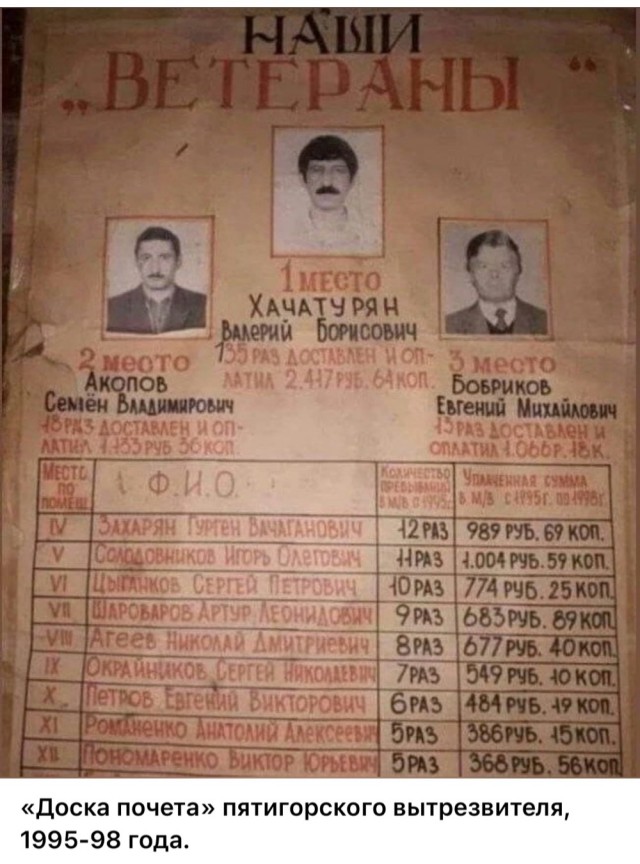 НАШИ
„ВЕТЕРАНЫ“
1 МЕСТО
ХАЧАТУРЯН
ВАЛЕРИЙ БОРИСОВИЧ
РАЗ ДОСТАВЛЕН И ОП-
ЛАТИЛ 2.417 РУБ. 64 КОП.
2 МЕСТО
АКОПОВ
СЕМЁН ВЛАДИМИРОВИЧ
РАЗ ДОСТАВЛЕН И ОП-
ЛАТИЛ 1.133 РУБ 36 КОП
3 МЕСТО
БОБРИКОВ
ЕВГЕНИЙ МИХАЙЛОВИЧ
РАЗ ДОСТАВЛЕН И
ОПЛАТИЛ 1.066Р.18К.
МЕСТО ПО ПОМЕЩ. Ф.И.О. КОЛИЧЕСТВО ПРЕБЫВАНИЙ В М/В С 1995г. УПЛАЧЕННАЯ СУММА В М/В С 1995г. ПО 1998г.
IV ЗАХАРЯН ГУРГЕН ВАЧАГАНОВИЧ 12 РАЗ 989 РУБ. 69 КОП.
V СОЛОДОВНИКОВ ИГОРЬ ОЛЕГОВИЧ 11 РАЗ 1.004 РУБ. 59 КОП.
VI ЦЫГАНКОВ СЕРГЕЙ ПЕТРОВИЧ 10 РАЗ 774 РУБ. 25 КОП.
VII ШАРОВАРОВ АРТУР ЛЕОНИДОВИЧ 9 РАЗ 683 РУБ. 89 КОП.
VIII АГЕЕВ НИКОЛАЙ ДМИТРИЕВИЧ 8 РАЗ 677 РУБ. 40 КОП.
IX ОКРАЙНИКОВ СЕРГЕЙ НИКОЛАЕВИЧ 7 РАЗ 549 РУБ. 10 КОП.
X. ПЕТРОВ ЕВГЕНИЙ ВИКТОРОВИЧ 6 РАЗ 484 РУБ. 19 КОП.
XI РОМАНЕНКО АНАТОЛИЙ АЛЕКСЕЕВИЧ 5 РАЗ 386 РУБ. 15 КОП.
XII ПОНОМАРЕНКО ВИКТОР ЮРЬЕВИЧ 5 РАЗ 368 РУБ. 56 КОП
«Доска почета» пятигорского вытрезвителя,
1995-98 года.